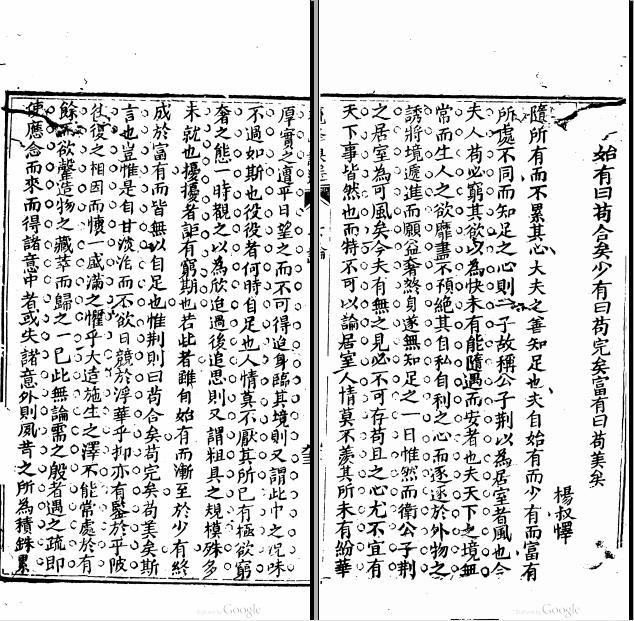 始有曰苟合矣少有曰苟完矣富有曰苟美矣
楊叔懌
隨所有而不累其心大夫之善知足也夫自始有而少有而富有
所處不同而知足之心則一子故稱公子荆以為居室者風也今
夫人苟必窮其欲以為快未有能隨遇而安者也夫天下之境無
常而生人之欲靡盡不預絕其自私自利之心而逐逐於外物之
誘將境遞進而願益奢終身遂無知足之一日惟然而衛公子荆
之居室為可風矣今夫有無之見必不可存苟且之心尤不宜有
天下事皆然也而特不可以論居室人情莫不羨其所未有紛華
厚實之遭平日望之而不可得迨身臨其境則又謂此中之況味
不過如斯也役役者何時自足也人情莫不厭其所已有極欲窮
奢之態一時觀之以為欣迨過後追思則又謂粗具之規模殊多
未就也擾擾者詎有窮期也若此者雖自始有而漸至於少有終
成於富有而皆無以自足也惟荆則曰苟合矣苟完矣苟美矣斯
言也豈惟是自甘淡泊而不欲日競於浮華乎抑亦有鑒於平陂
往復之相因而懷一盛滿之懼乎大造施生之澤不能常處於有
餘欲罄造物之藏萃而歸之一已此無論需之殷者遇之疏即
使應念而來而得諸意中者或失諸意外則夙昔之所為積銖累